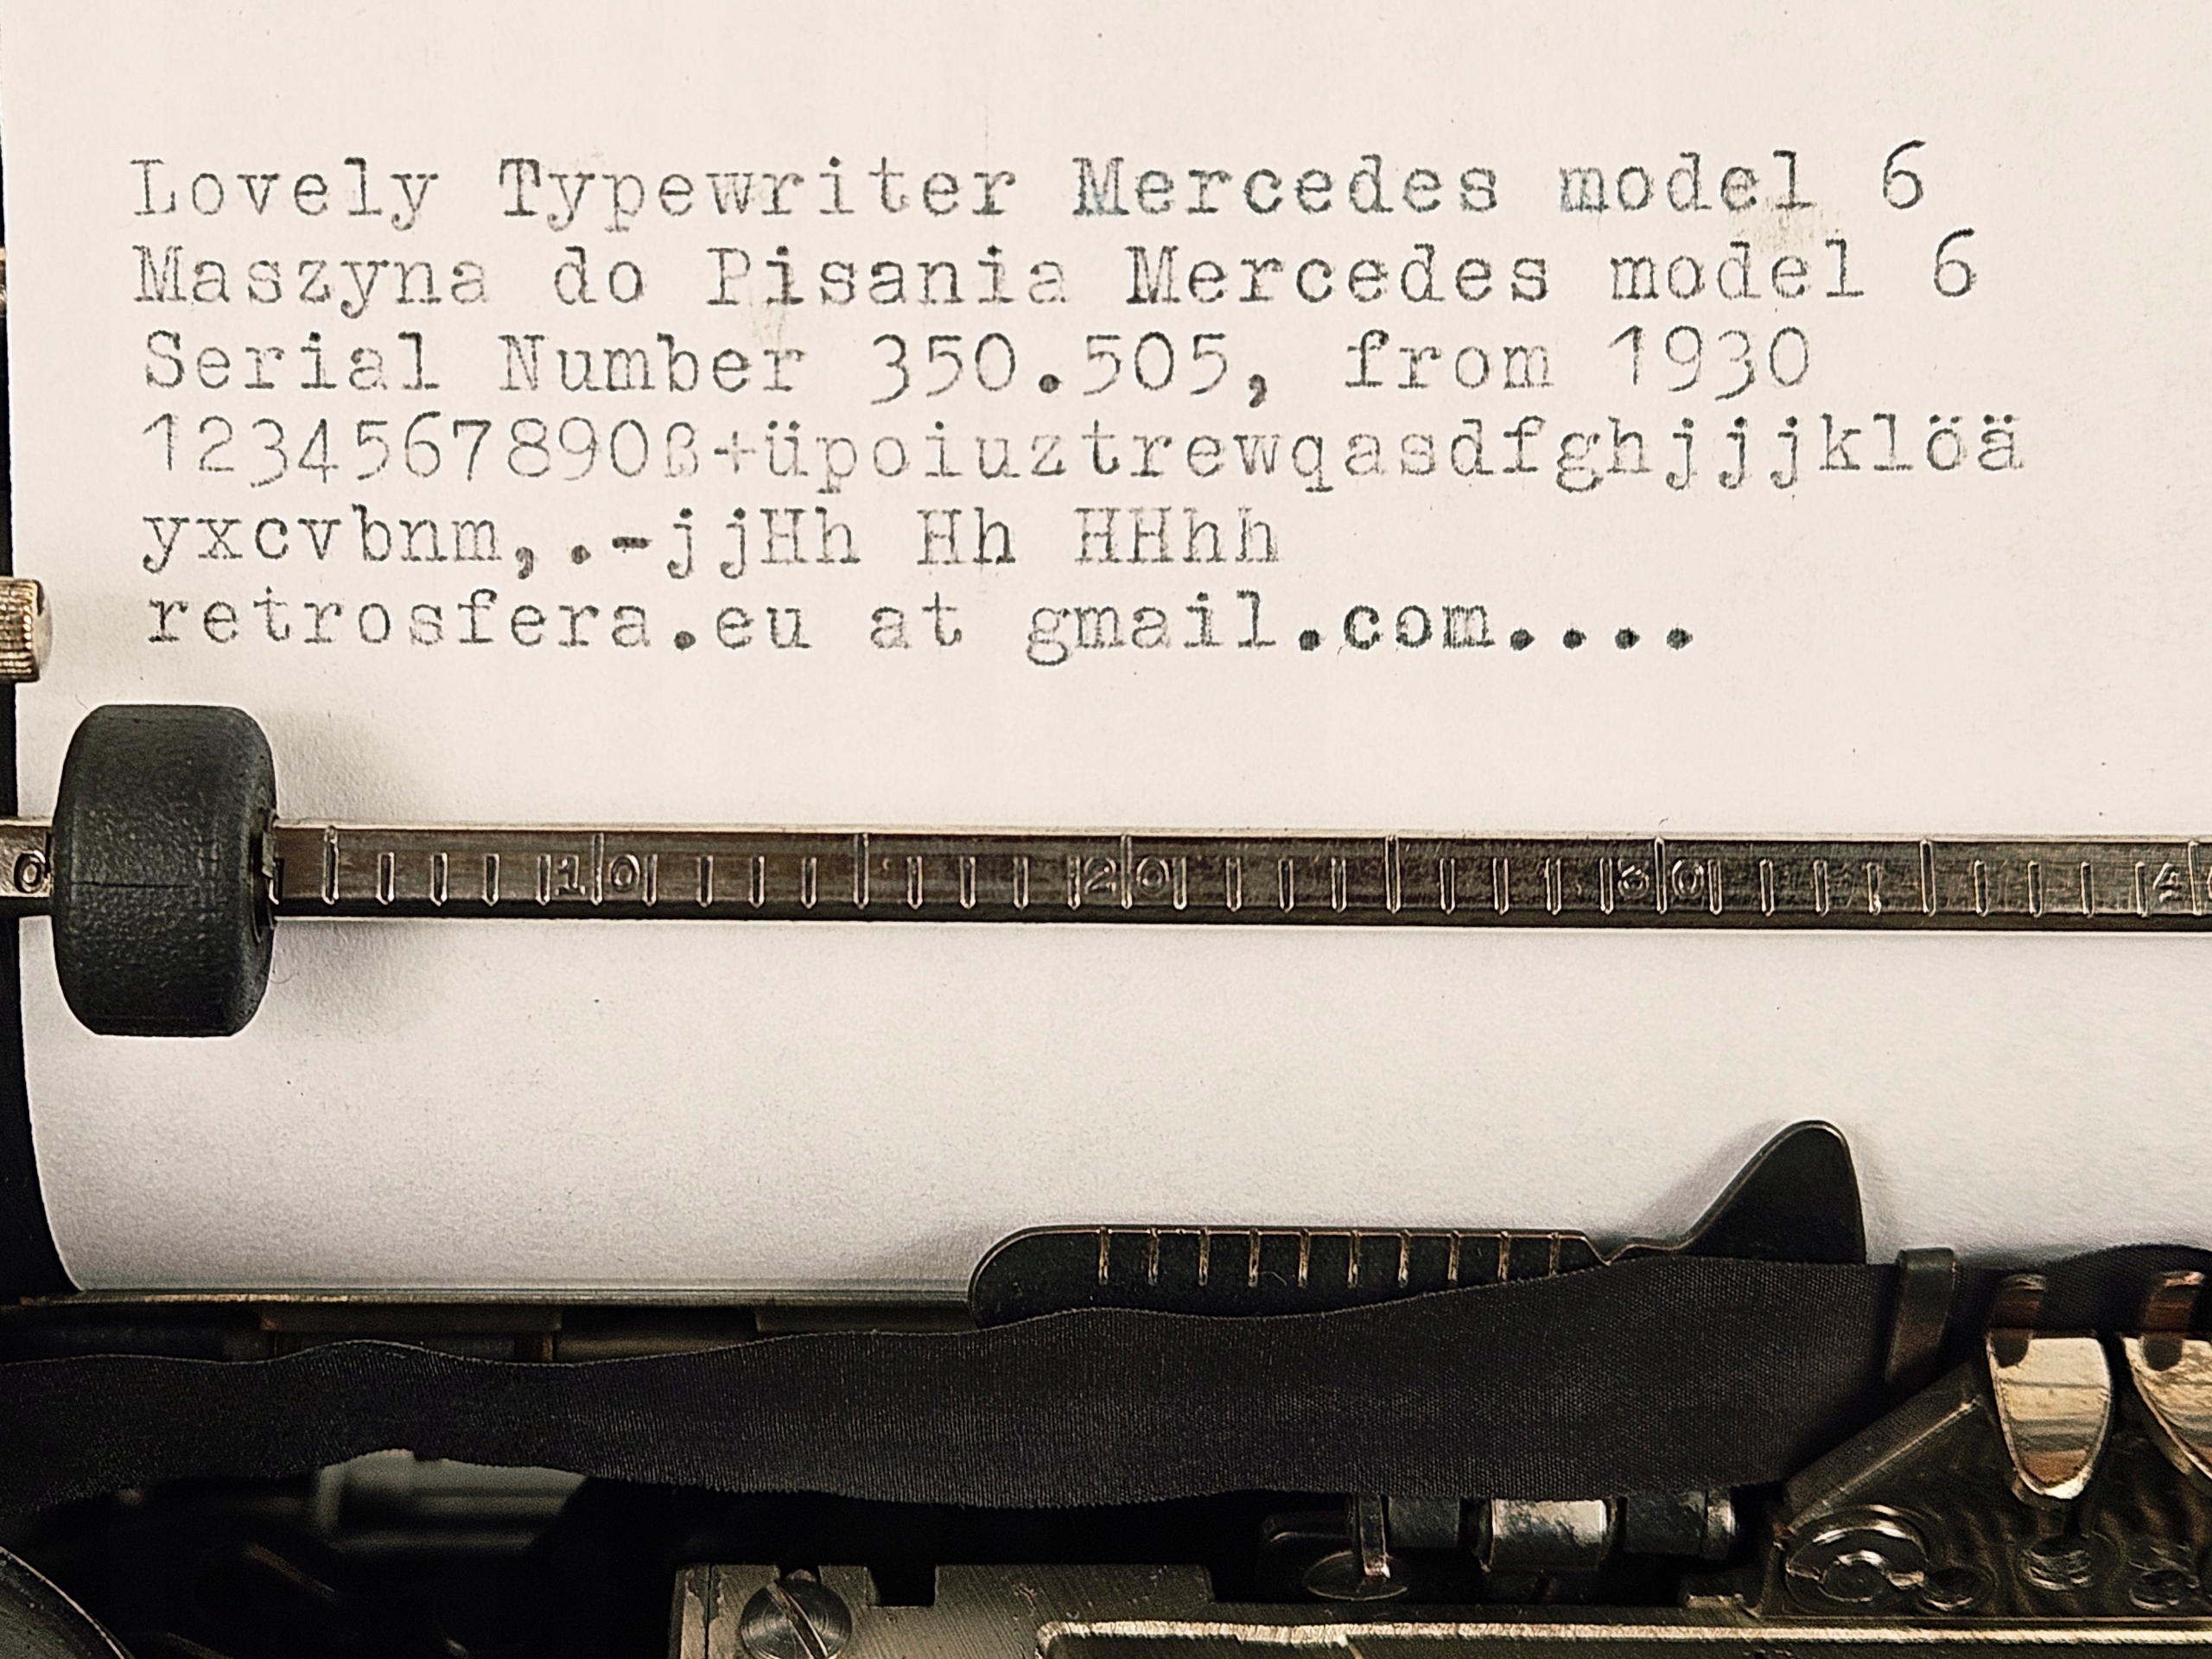 Lovely Typewriter Mercedes model 6
Maszyna do Pisania Mercedes model 6
Serial Number 350.505, from 1930
1234567890ß+üpoiuztrewqasdfghjjjklöä
yxcvbnm,.-jjHh Hh HHhh
retrosfera.eu at gmail.com....
0 10 20 30 4